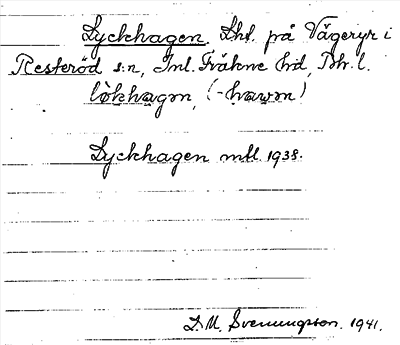 Lyckhagen. Lht. på Vågeryr i
Resteröd s:n, Inl. Fräkne hd, Boh. l.
lökhagən, (-hawən)
Lyckhagen mtl. 1938.
D.M. Svenungsson. 1941.